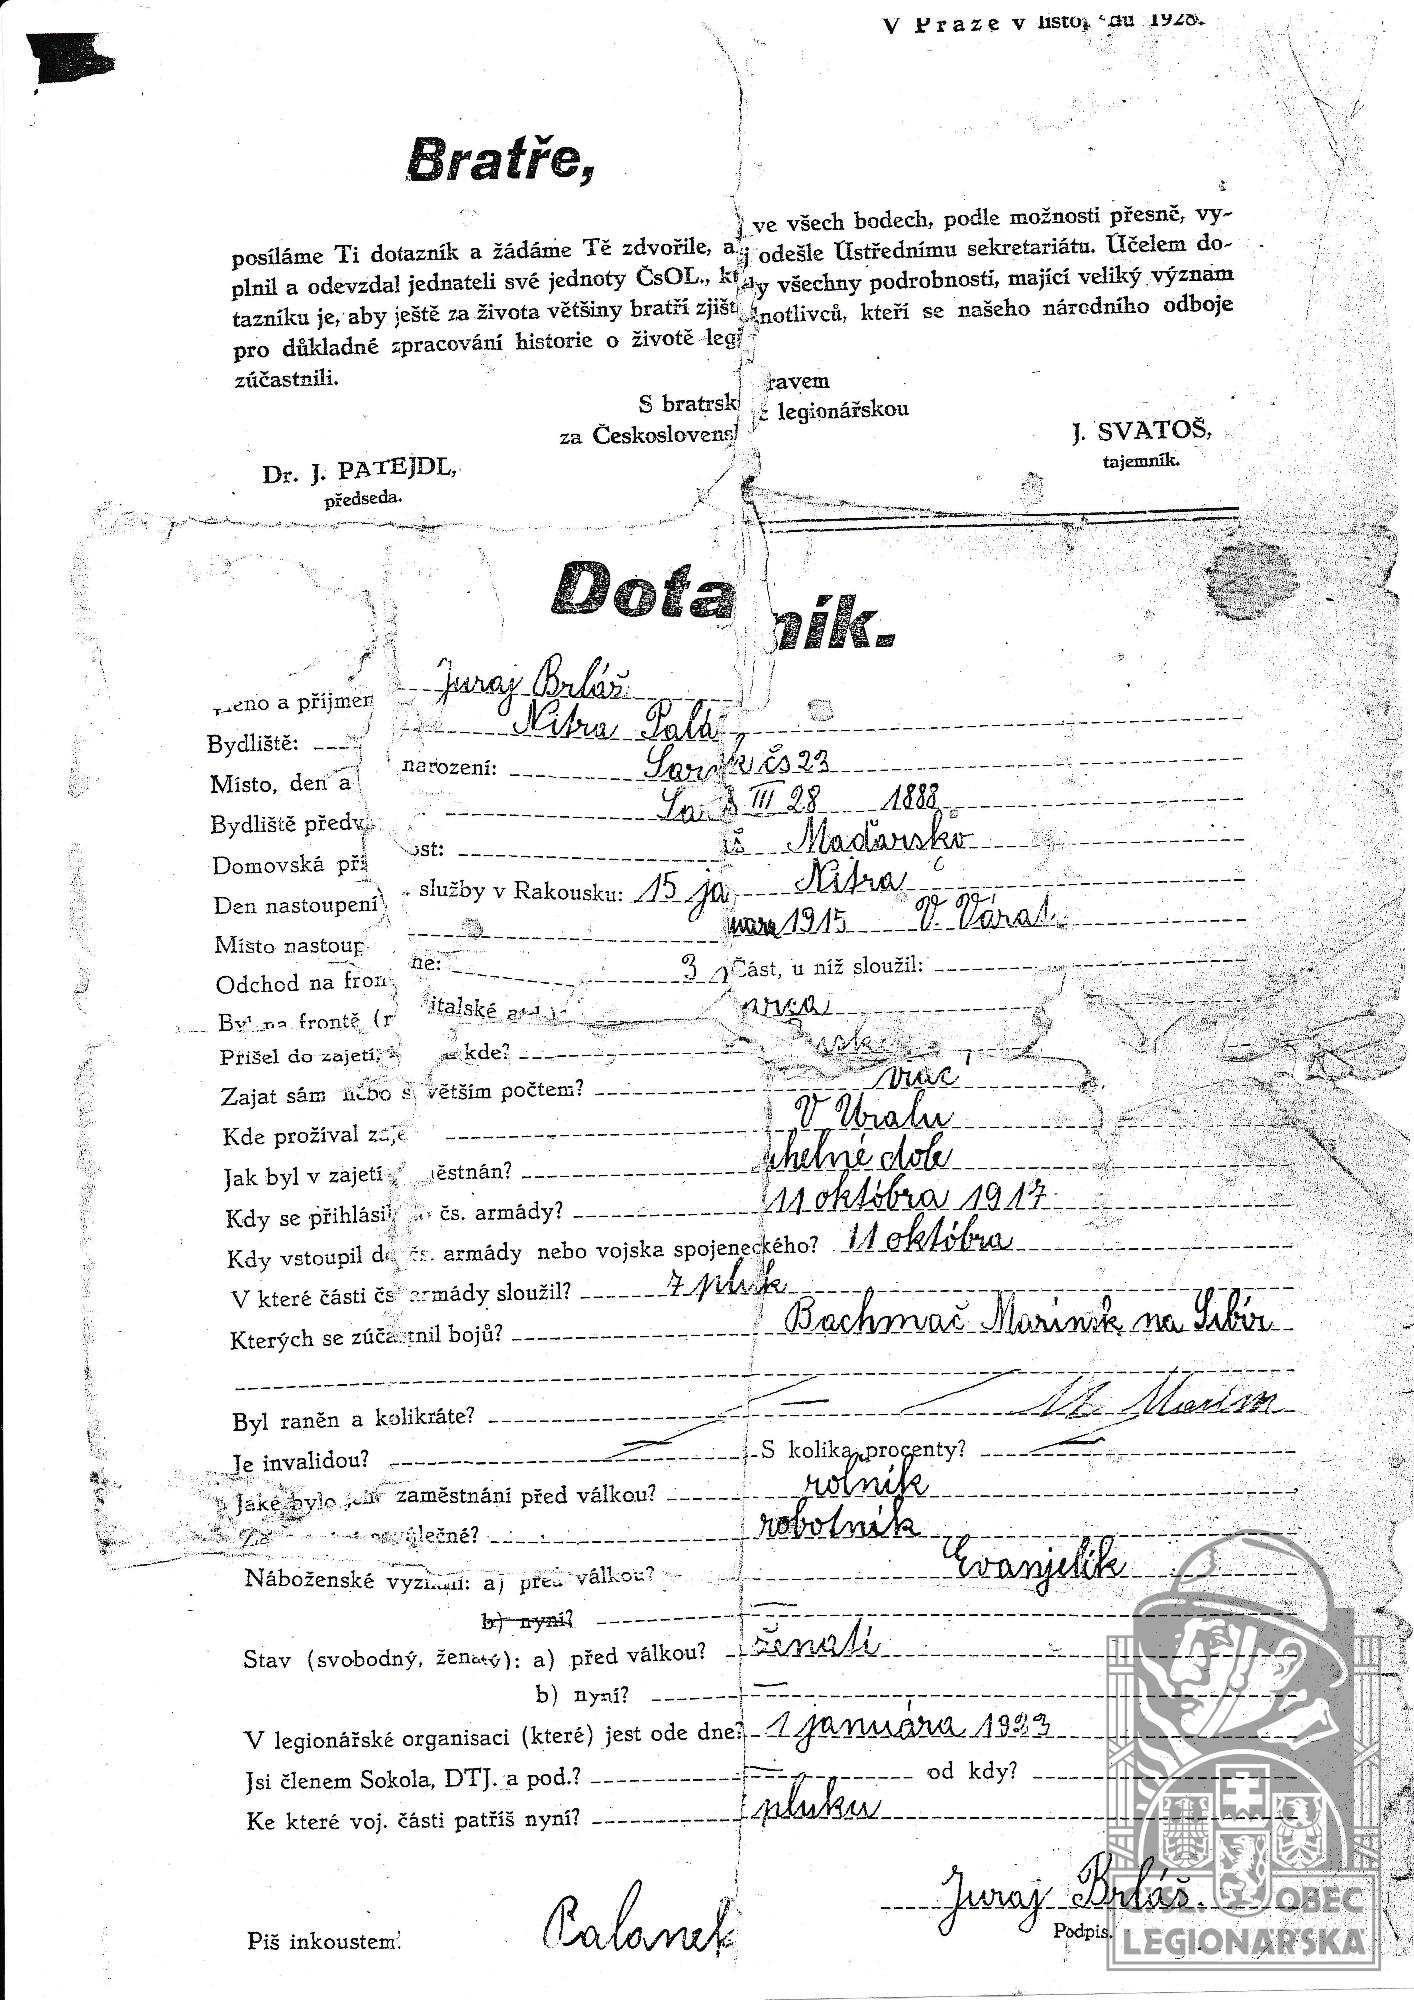 V Praze v listopadu 1928.
Bratře,
posíláme Ti dotazník a žádáme Tě zdvořile, a ve všech bodech, podle možnosti přesně, vy-
plnil a odevzdal jednateli své jednoty ČsOL., kt odešle Ústřednímu sekretariátu. Účelem do-
tazníku je, aby ještě za života většiny bratří zjišt y všechny podrobnosti, mající veliký význam
pro důkladné zpracování historie o životě legi notlivců, kteří se našeho národního odboje
zúčastnili.
S bratrsk ravem
za Českoslovens legionářskou
Dr. J. PATEJDL,
předseda.
J. SVATOŠ,
tajemník.
Dota ník.
méno a příjmen Juraj Brláš
Bydliště: Nitra Palá
Místo, den a narození: čs 23
Bydliště předv III 28 1888
Domovská pří ost: Maďarsko
Den nastoupení služby v Rakousku: 15 ja Nitra
Místo nastoup 1915 V. Várat
Odchod na fron ne: 3 Část, u níž sloužil:
Byl na frontě (r italské arca
Přišel do zajetí, kde?
Zajat sám nebo s větším počtem? viac
Kde prožíval zaje V Uralu
Jak byl v zajetí městnán? uhelné dole
Kdy se přihlásil čs. armády? 11 októbra 1917
Kdy vstoupil do čs. armády nebo vojska spojeneckého? 11 októbra
V které části čs armády sloužil? 7 pluk
Kterých se zúčastnil bojů? Bachmač Marinsk na Sibír
Byl raněn a kolikráte? —
Je invalidou? — S kolika procenty? —
Jaké bylo jeho zaměstnání před válkou? rolník
válečné? robotník
Náboženské vyznání: a) před válkou? Evanjelik
b) nyní? —
Stav (svobodný, ženatý): a) před válkou? ženatí
b) nyní? —
V legionářské organisaci (které) jest ode dne? 1 januára 1923
Jsi členem Sokola, DTJ. a pod.? — od kdy?
Ke které voj. části patříš nyní? pluku
Juraj Brláš.
Podpis.
Piš inkoustem!
Palanek
ČSL. OBEC
LEGIONÁŘSKÁ